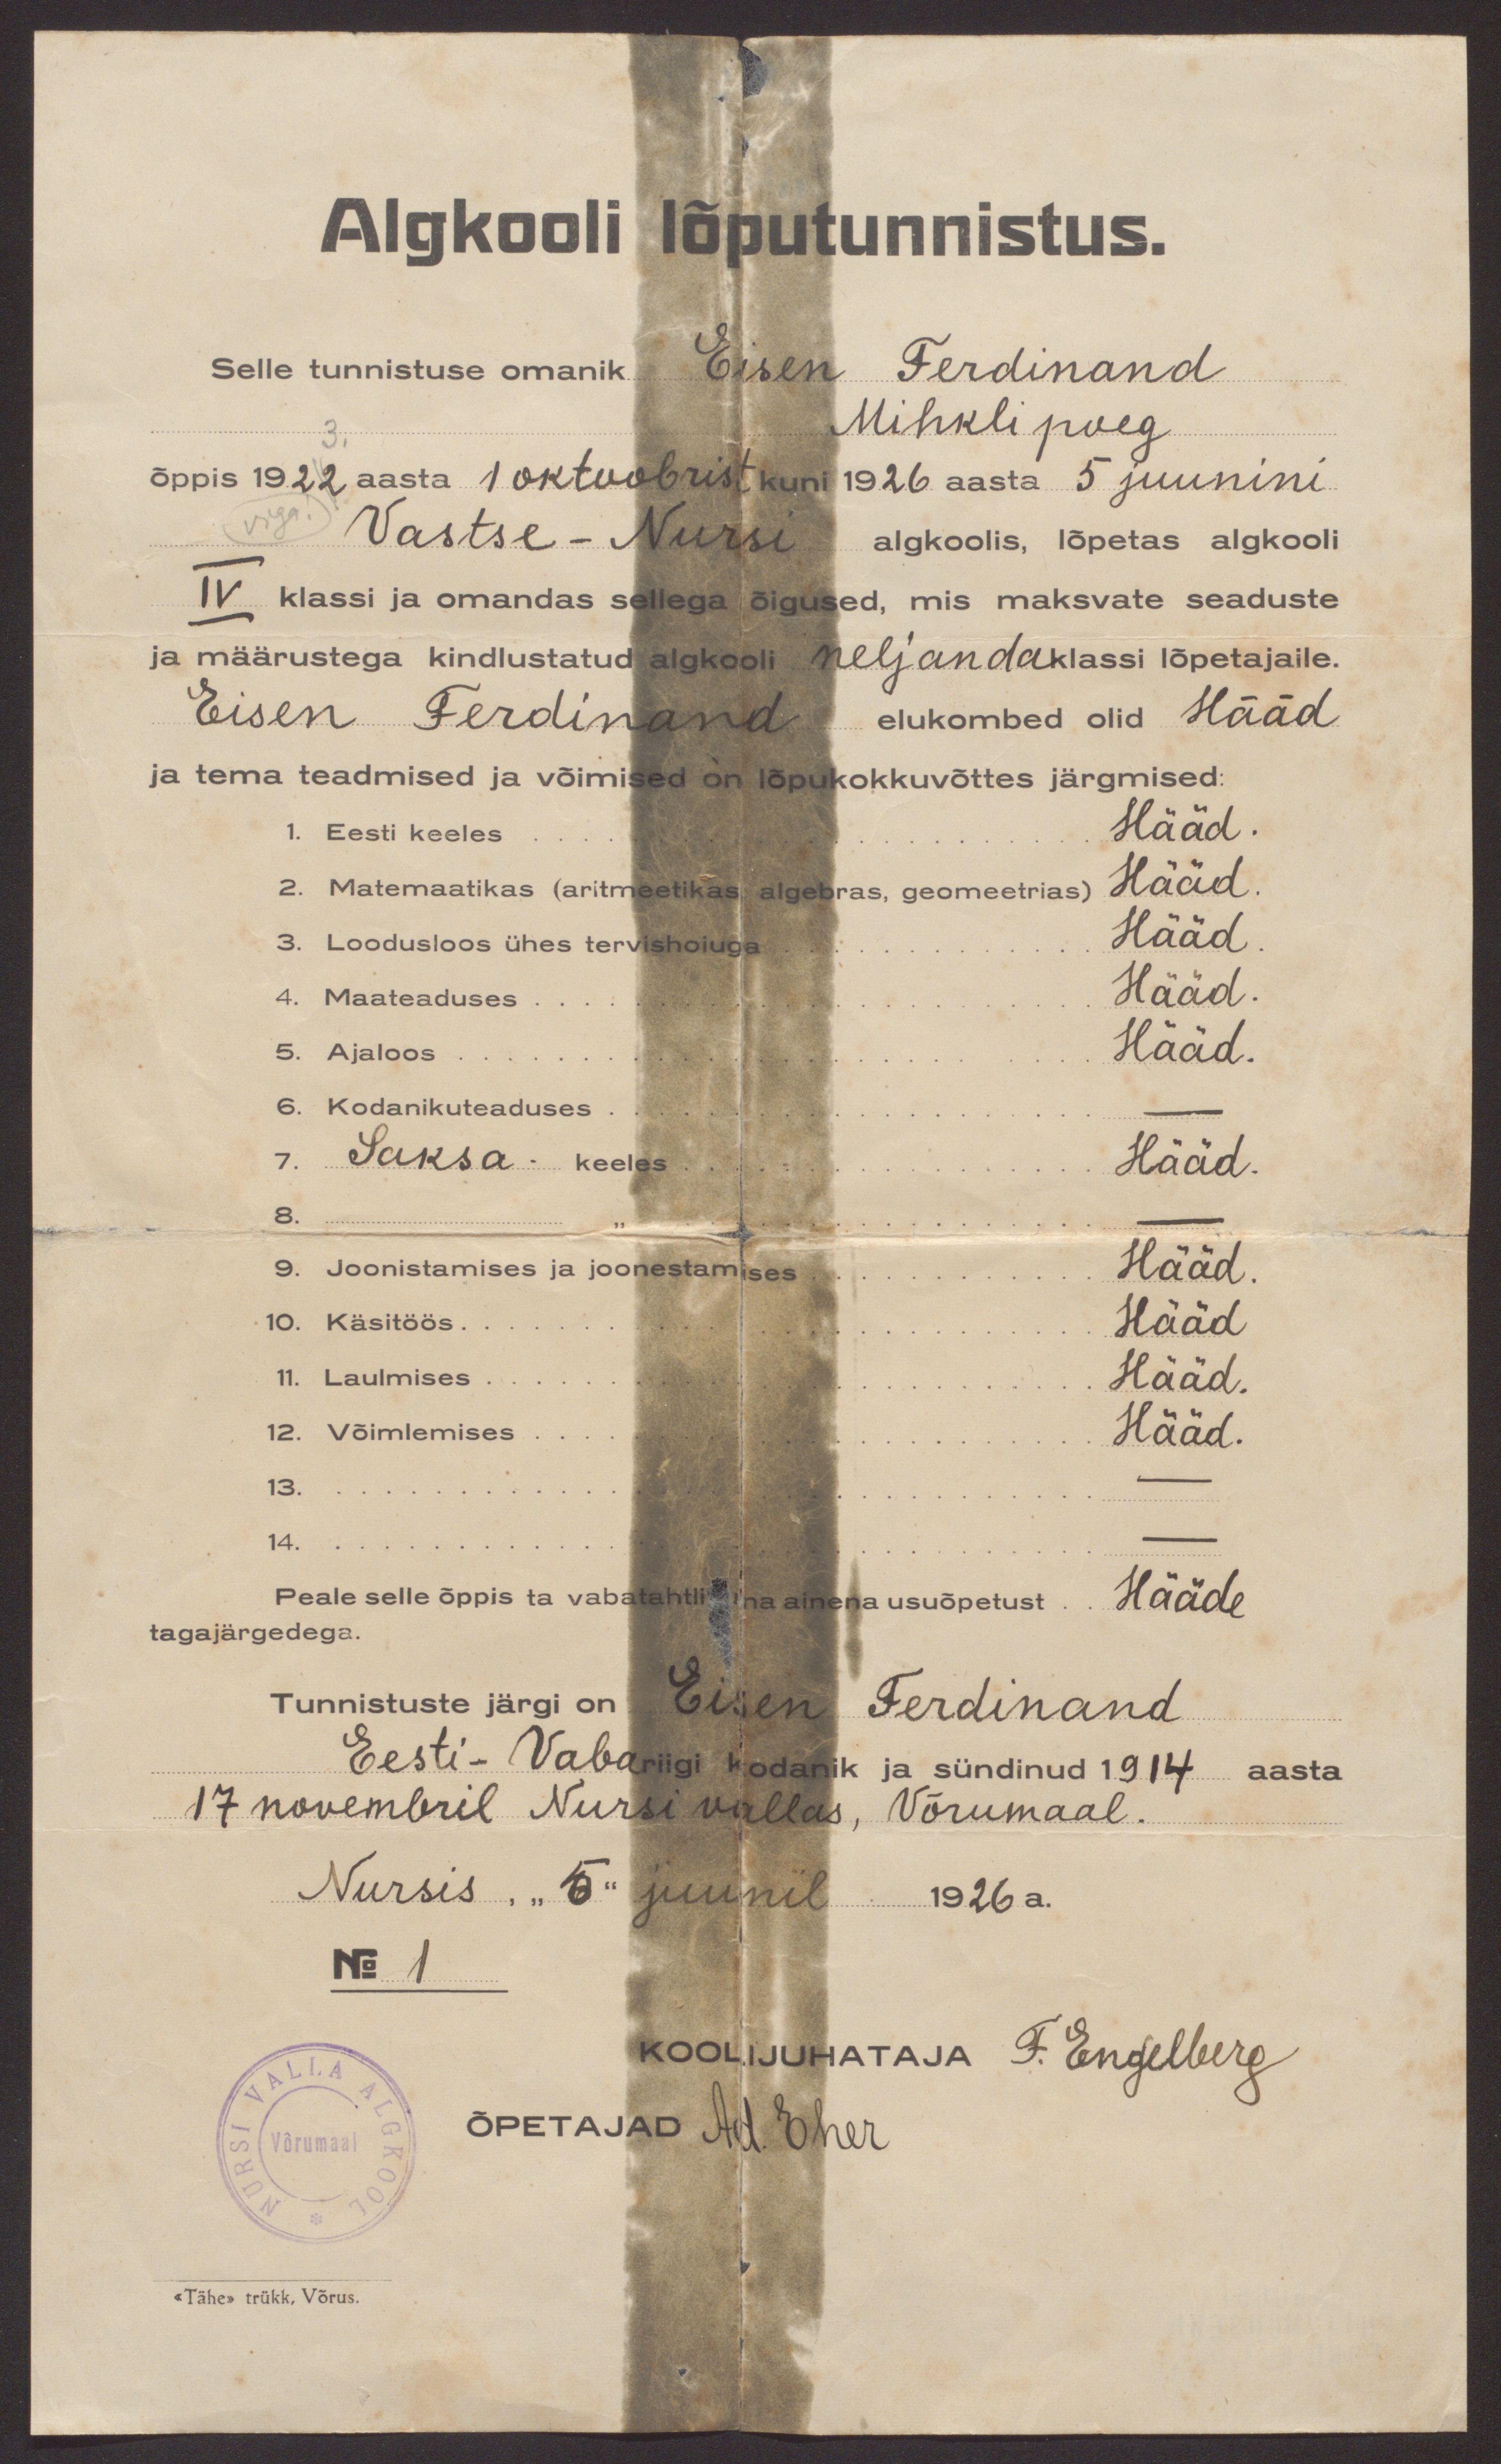 Algkooli lõputunnistus.
Selle tunnistuse omanik Eisen Ferdinand
Mihkli poeg
3.
õppis 1922 aasta 1 oktoobrist kuni 1926 aasta 5 juunini
viga! Vastse-Nursi algkoolis, lõpetas algkooli
IV klassi ja omandas sellega õigused, mis maksvate seaduste
ja määrustega kindlustatud algkooli neljanda klassi lõpetajaile.
Eisen Ferdinand elukombed olid Hääd
ja tema teadmised ja võimised on lõpukokkuvõttes järgmised:
1. Eesti keeles Hääd.
2. Matemaatikas (aritmeetikas, algebras, geomeetrias) Hääd.
3. Loodusloos ühes tervishoiuga Hääd.
4. Maateaduses Hääd.
5. Ajaloos Hääd.
6. Kodanikuteaduses —
7. Saksa - keeles Hääd.
8. „ —
9. Joonistamises ja joonestamises Hääd.
10. Käsitöös Hääd
11. Laulmises Hääd.
12. Võimlemises Hääd.
13. —
14. —
Peale selle õppis ta vabatahtlikuna ainena usuõpetust Hääde
tagajärgedega.
Tunnistuste järgi on Eisen Ferdinand
Eesti-Vabariigi kodanik ja sündinud 1914 aasta
17 novembril Nursi vallas, Võrumaal.
Nursis, „5“ juunil 1926 a.
№ 1
KOOLIJUHATAJA F. Engelberg
ÕPETAJAD Ad. Eher
NURSI VALLA ALGKOOL
Võrumaal
«Tähe» trükk, Võrus.